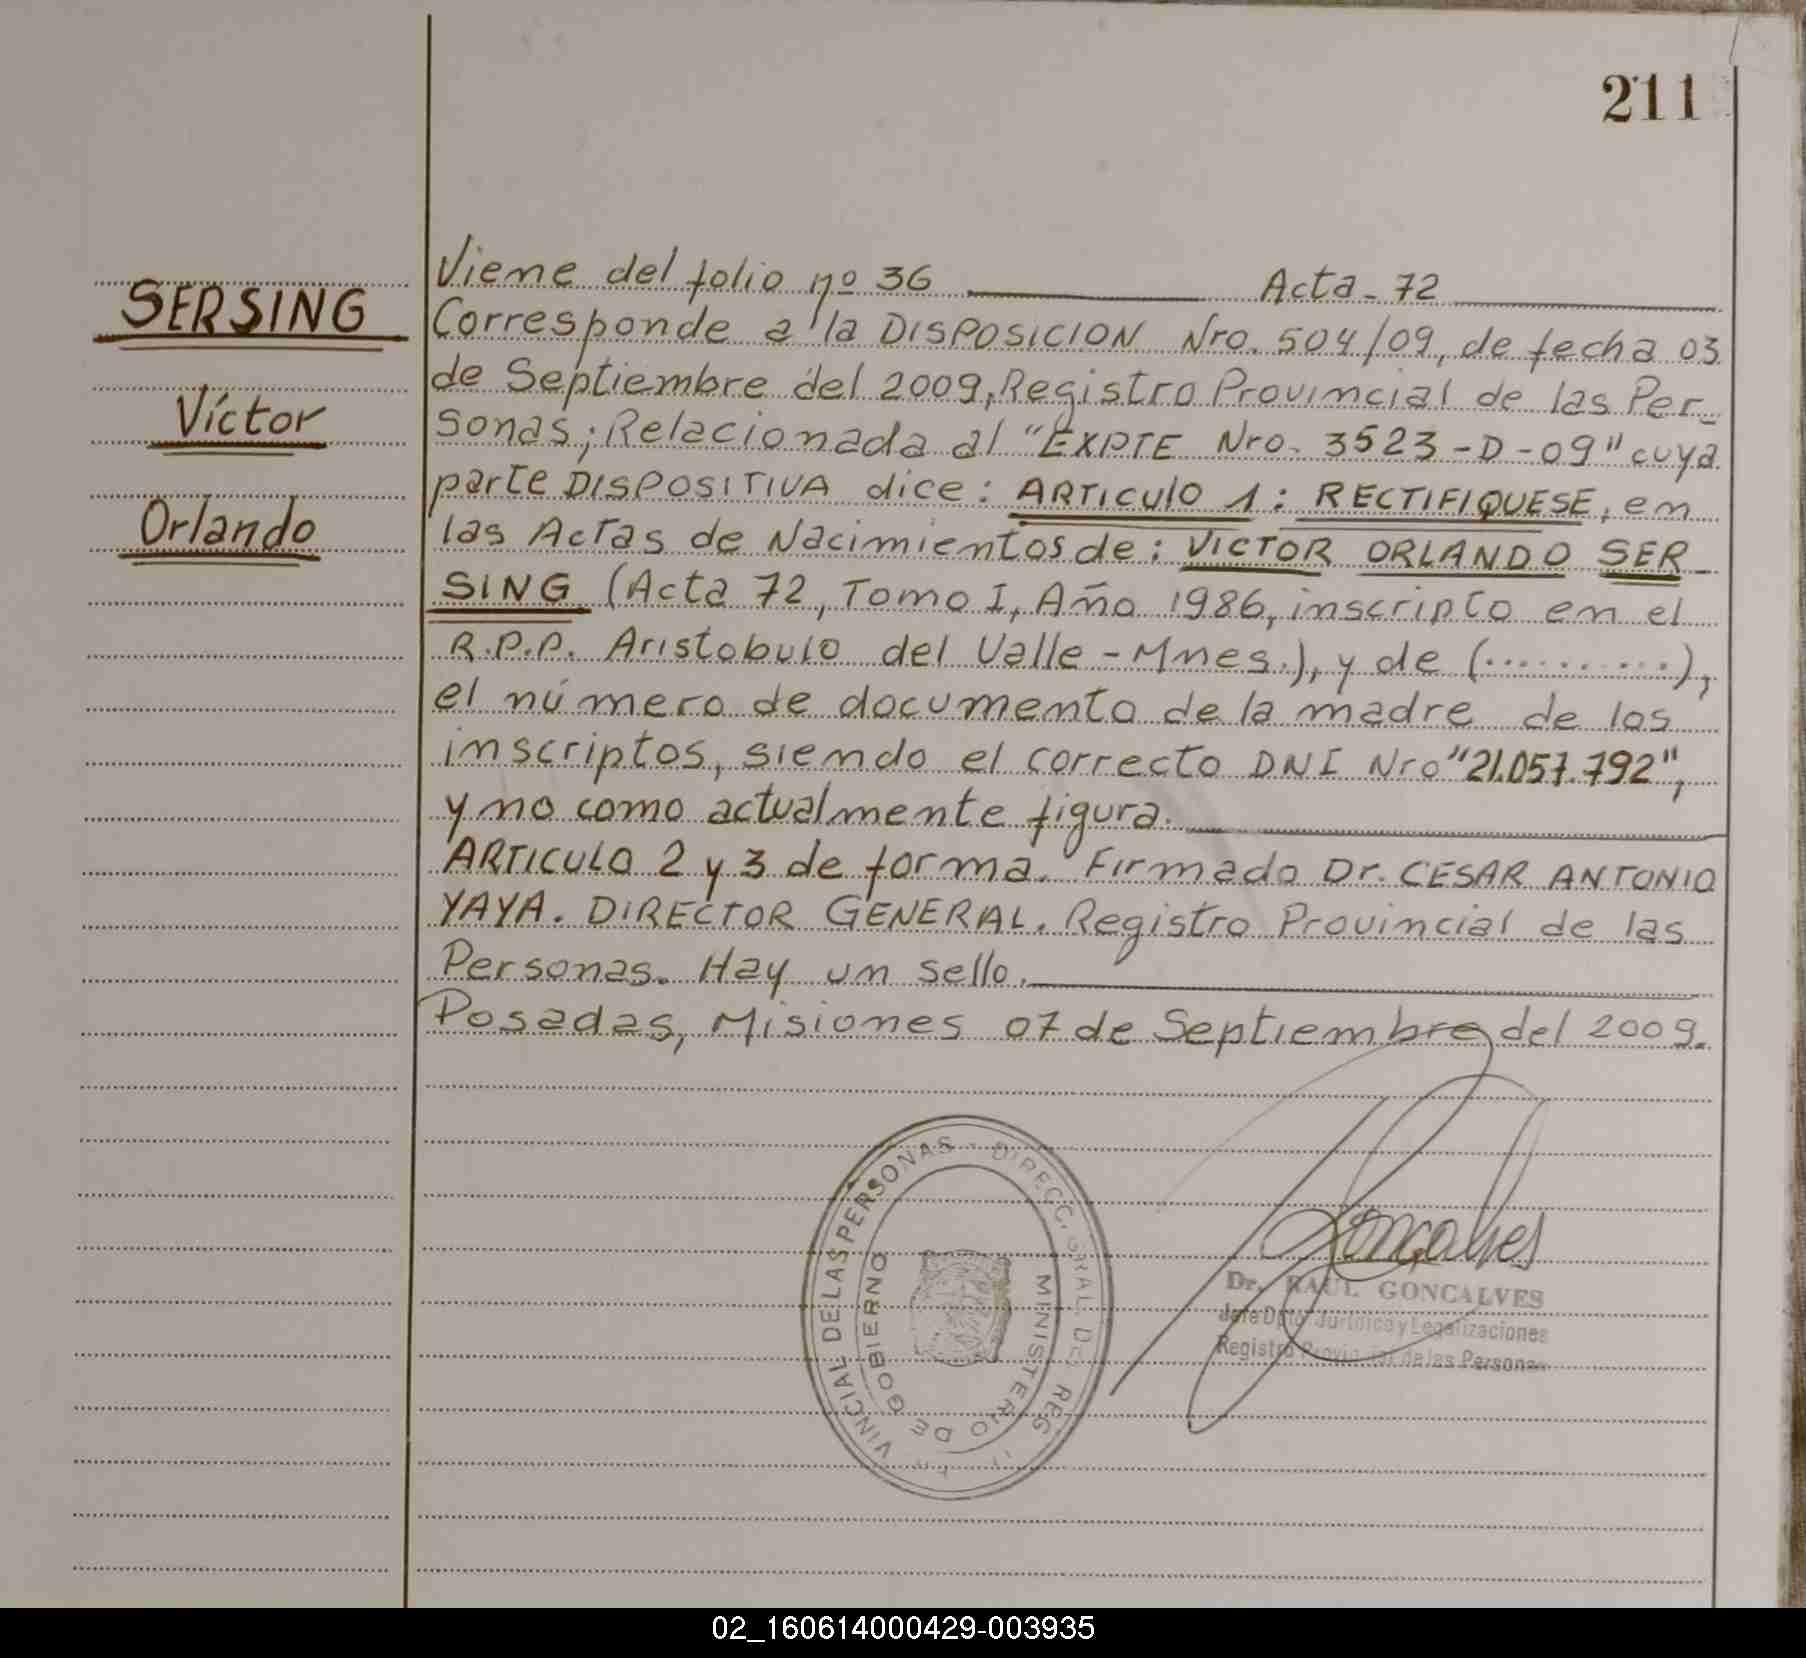 211
SERSING
Víctor
Orlando
Viene del folio nº 36 Acta - 72
Corresponde a la DISPOSICION Nro. 504/09, de fecha 03
de Septiembre del 2009, Registro Provincial de las Per-
sonas; Relacionada al "EXPTE Nro. 3523-D-09" cuya
parte DISPOSITIVA dice: ARTICULO 1: RECTIFIQUESE, en
las Actas de Nacimientos de: VICTOR ORLANDO SER-
SING (Acta 72, Tomo I, Año 1986, inscripto en el
R.P.P. Aristobulo del Valle - Mnes.), y de (..........),
el número de documento de la madre de los
inscriptos, siendo el correcto DNI Nro "21.057.792",
y no como actualmente figura.
ARTICULO 2 y 3 de forma. Firmado Dr. CESAR ANTONIO
YAYA. DIRECTOR GENERAL. Registro Provincial de las
Personas. Hay un sello.
Posadas, Misiones 07 de Septiembre del 2009.
DIRECC. GRAL. DEL REG. VINCIAL DE LAS PERSONAS
MINISTERIO DE GOBIERNO
Goncalves
Dr. RAUL GONCALVES
Jefe Dpto. Jurídico y Legalizaciones
Registro Provincial de las Personas
02_160614000429-003935